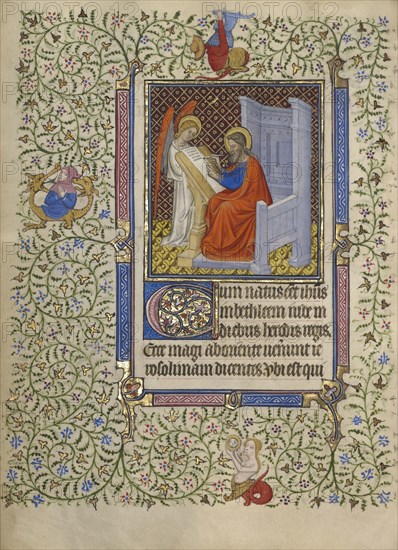 Cum natus est ihus
in bethleem iude in
diebus herodis regis.
Ecce magi ab oriente uenerunt ie
rosolimam dicentes vbi est qui